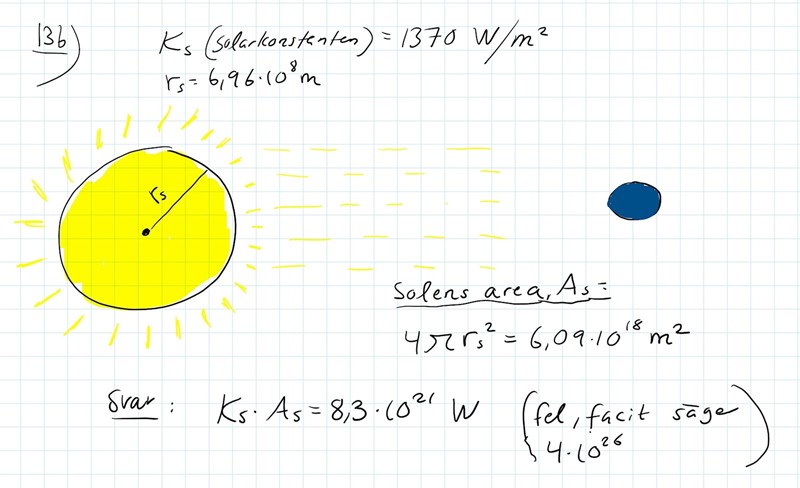 13b)
Ks (Solarkonstanten) = 1370 W/m²
rs = 6,96·10⁸ m
rs
Solens area, As =
4πrs² = 6,09·10¹⁸ m²
Svar: Ks · As = 8,3·10²¹ W (fel, facit säger
4·10²⁶)